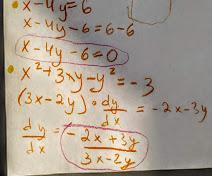 x - 4y = 6
x - 4y - 6 = 6 - 6
x - 4y - 6 = 0
x² + 3xy - y² = -3
(3x - 2y) · dy/dx = -2x - 3y
dy/dx = - (2x + 3y)/(3x - 2y)